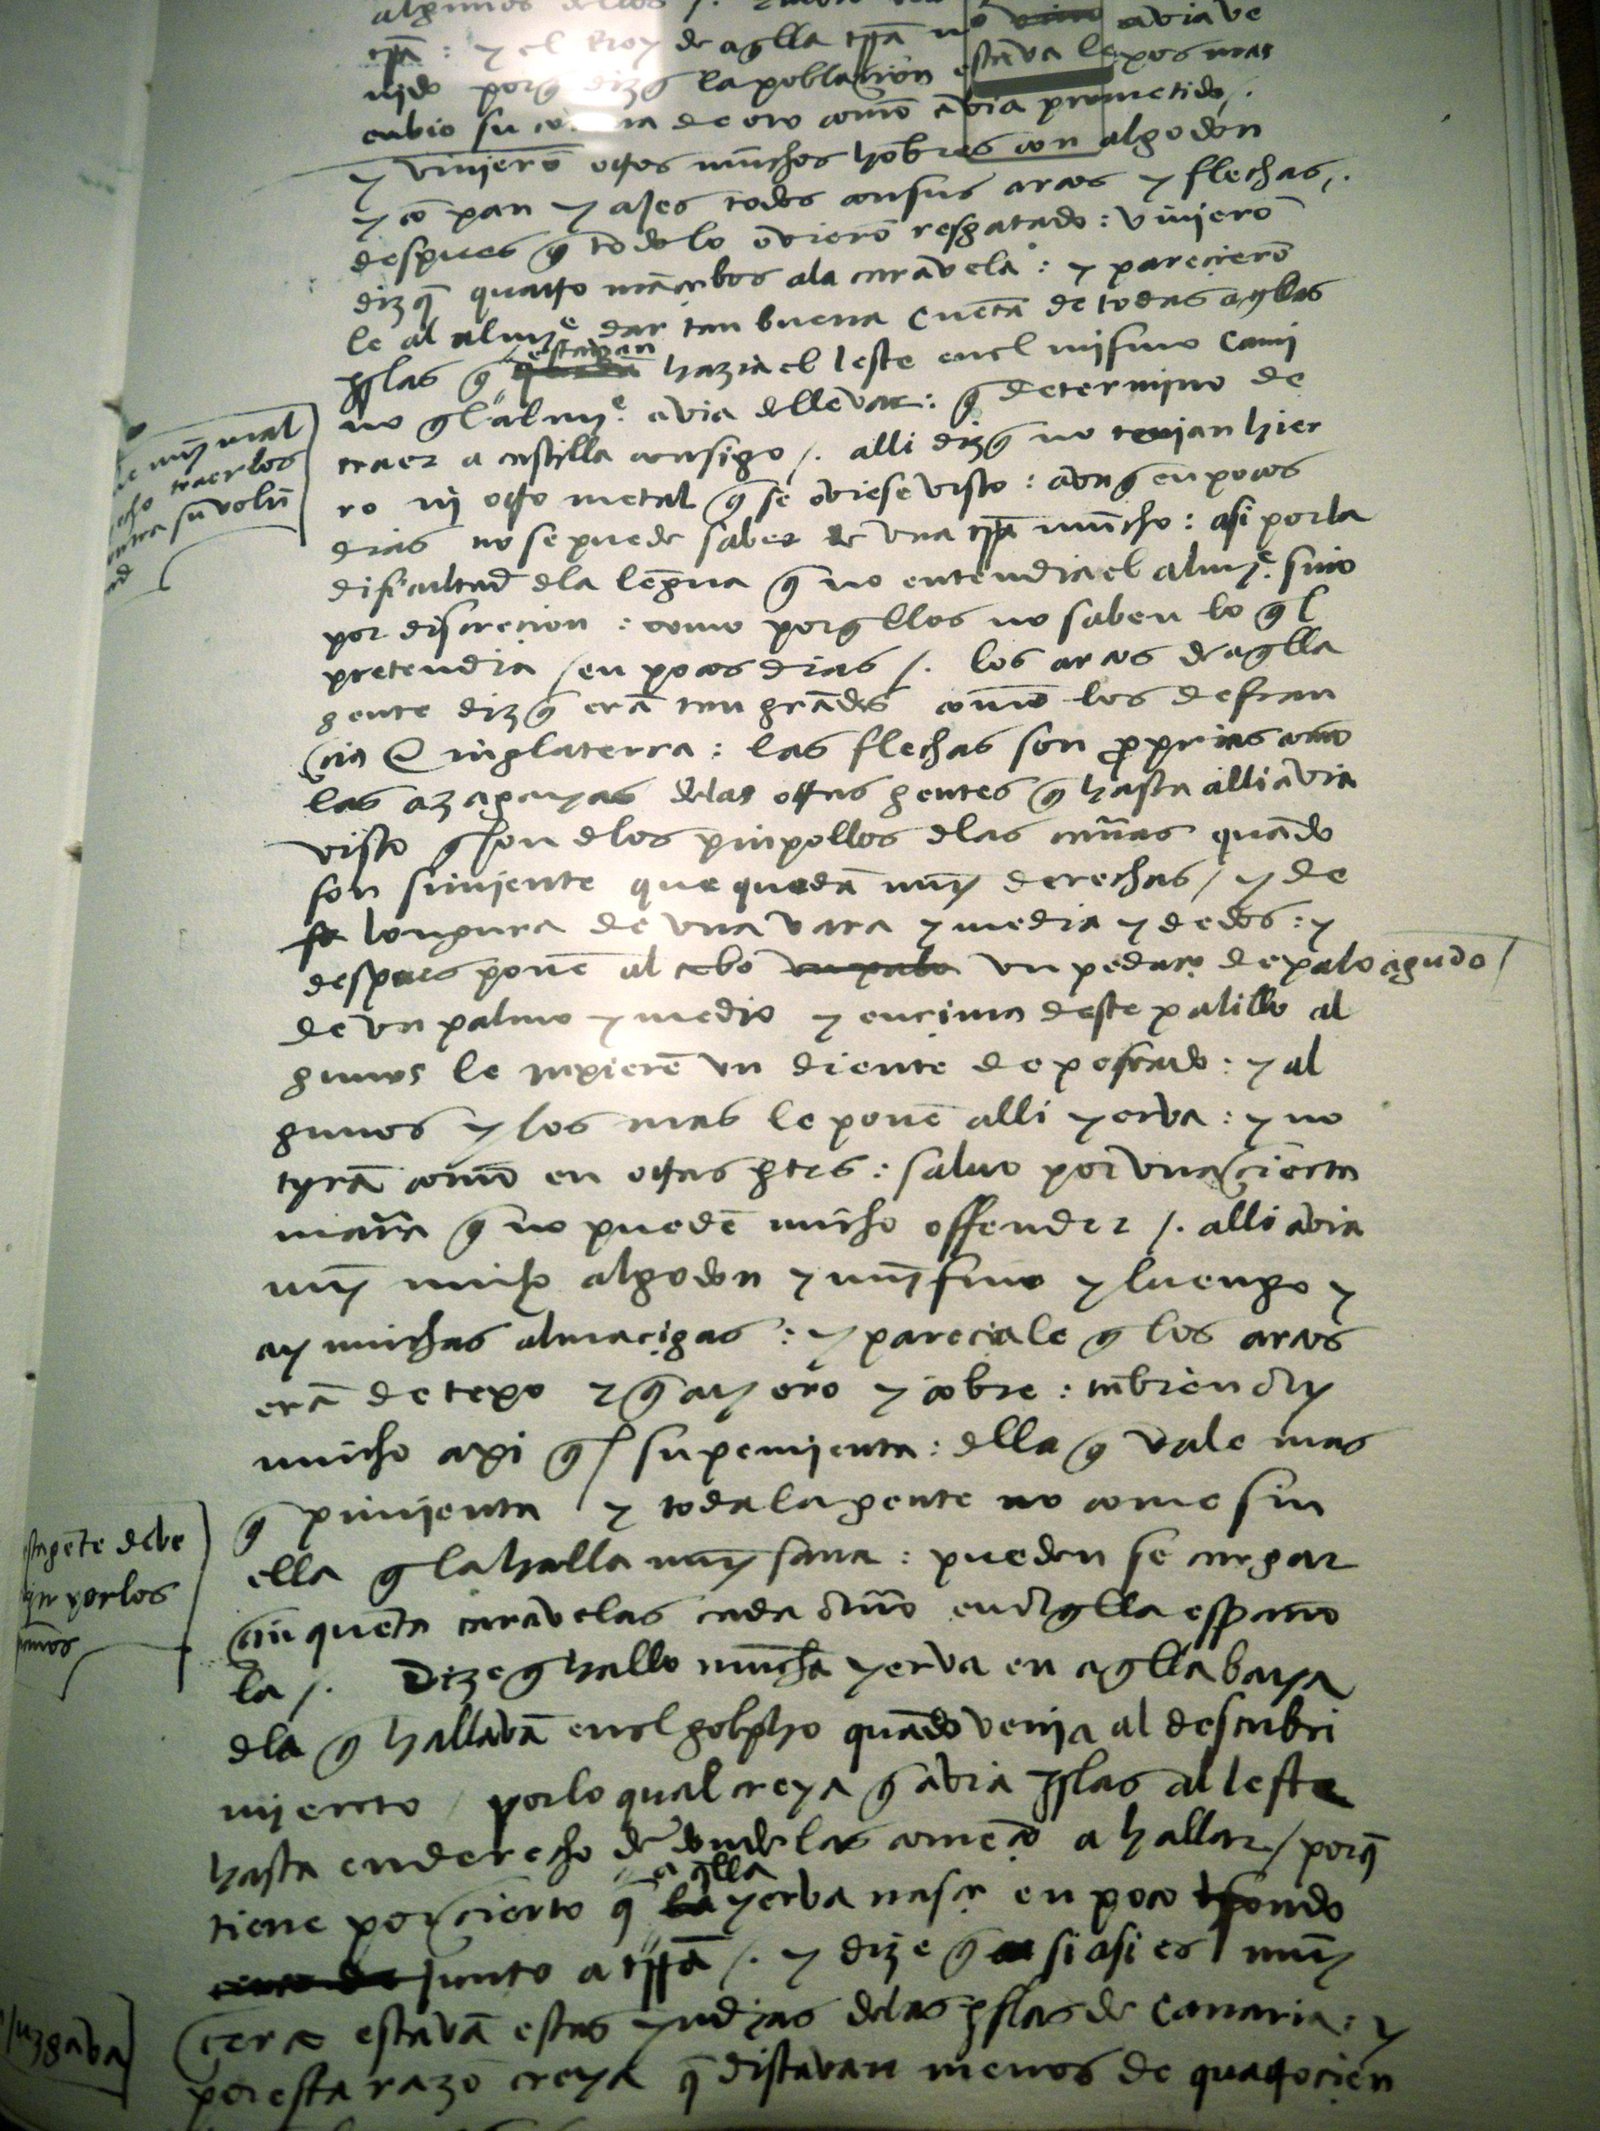 algunos dellos /.
trã : y el Rey de aqlla trã no vino avia ve
nido porq̃ dizq̃ la poblaçion estava lexos mas
enbio su corona de oro como avia prometido /.
y vinierõ otros muchos hõbres con algodon
y cõ pan y ajes todos con sus arcos y flechas /.
despues q̃ todo lo ovierõ resgatado : vinierõ
dizq̃ quatro mãcebos ala caravela : y pareçierõ
le al almye dar tan buena cuẽta de todas aqllas
yslas q̃ estavan hazia el leste enel mismo cami
no ql almye avia de llevar : q̃ determino de
traer a castilla consigo /. alli dizq̃ no tenian hier
ro nj otro metal q̃ se oviese visto : avnq̃ en pocos
dias no se puede saber de vna trã mũcho : asi por la
dificultad dla lẽgua q̃ no entendia el almye sino
por discreçion : como porqllos no saben lo ql
pretendia / en pocos dias /. los arcos de aqlla
gente dizq̃ erã tan grãdes como los de fran
çia e inglaterra : las flechas son proprias como
las azagayas delas otras gentes q̃ hasta alli avia
visto q son dlos pinpollos dlas cañas quãdo
son simiente que quedã muy derechas / y de
longura de vna vara y media y de dos : y
despues ponẽ al cabo vn palo vn pedaço de palo agudo /
de vn palmo y medio y ençima deste palillo al
gunos le inxierẽ vn diente de pescado : y al
gunos y los mas le ponẽ alli yerva : y no
tyrã como en otras ptes : salvo por vna çierta
mañra q̃ no puedẽ mucho offender /. alli avia
muy mucho algodon y muy fino y luengo y
ay muchas almaçigas : y pareciale q̃ los arcos
erã de texo y q̃ ay oro y cobre : tãbien ay
mucho axi qs su pemienta : della q̃ vale mas
q̃ pimienta y toda la gente no come sin
ella q la halla muy sana : pueden se cargar
çinquẽta caravelas cada año en aqlla españo
la /. Dize q hallo mũcha yerva en aqlla baya
dla q̃ hallavã enel golpho quãdo venia al descubri
miento / por lo qual creya q̃ avia yslas al leste
hasta en derecho de donde las començo a hallar / porq̃
tiene por çierto q̃ aqlla yerva nasçe en poco fondo
junto a trã /. y dize q̃ si asi es muy
çerca estavã estas yndias delas yslas de canaria : y
por esta razõ creya q̃ distavan menos de quatroçien
muy mal
hecho traerlos
contra su volũ
tad
sta gẽte debe
por los
juzgava